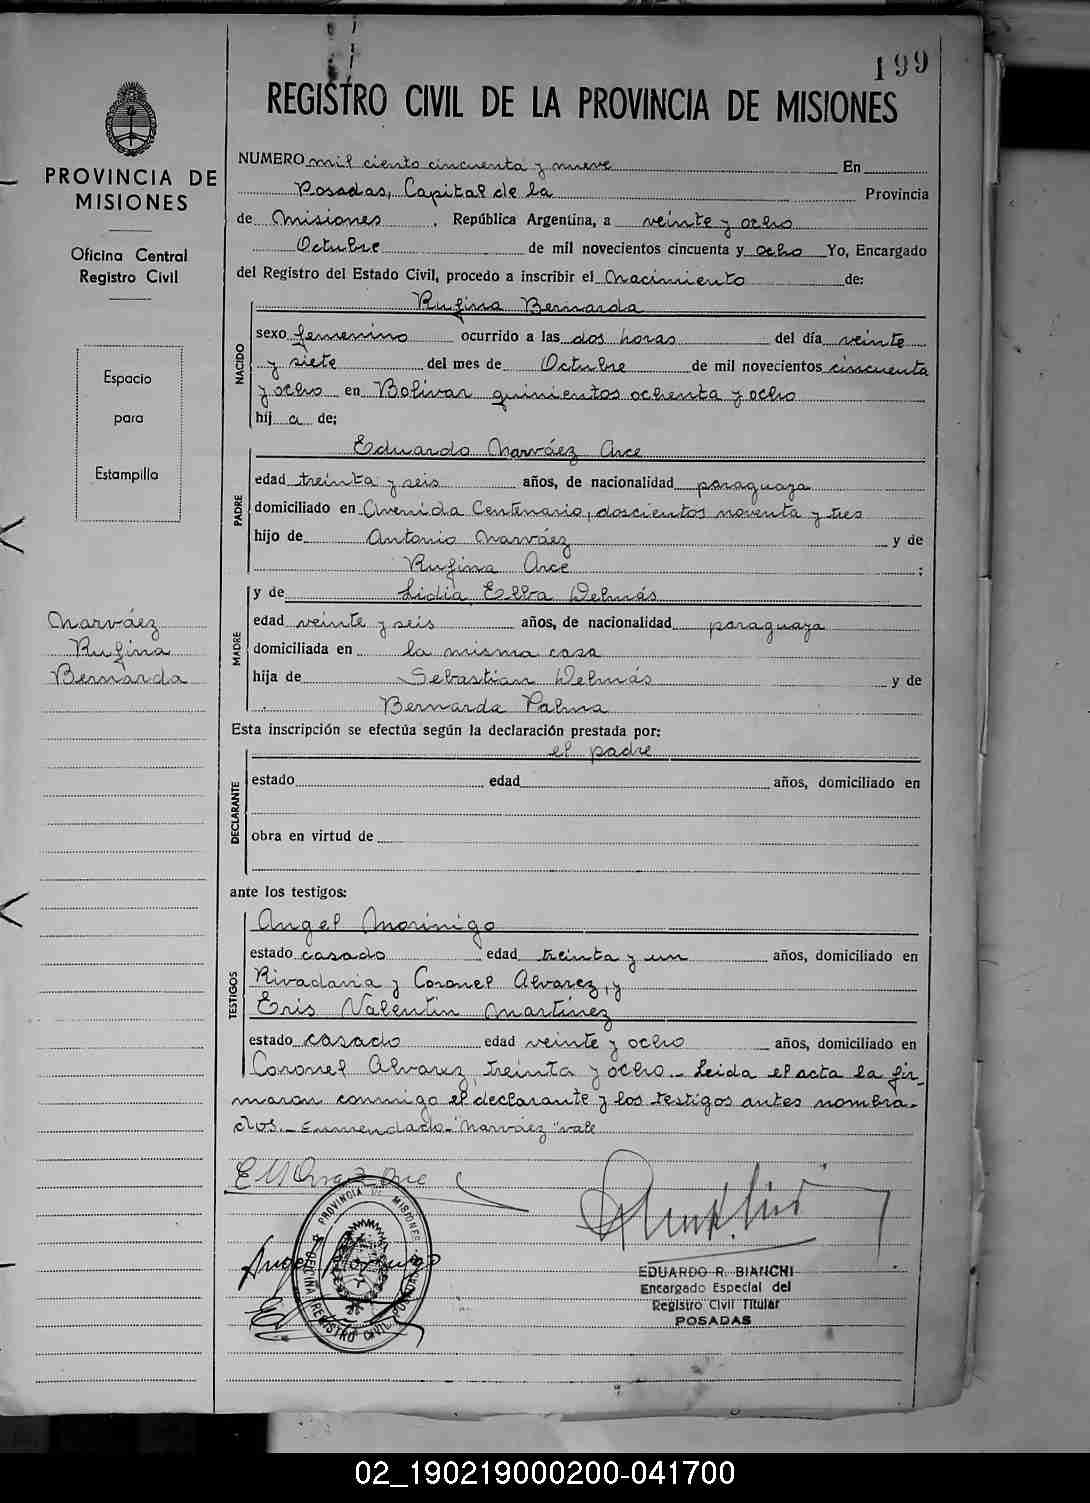 199
REGISTRO CIVIL DE LA PROVINCIA DE MISIONES
PROVINCIA DE
MISIONES
Oficina Central
Registro Civil
Espacio
para
Estampilla
Narváez
Rufina
Bernarda
NUMERO mil ciento cincuenta y nueve En
Posadas, Capital de la Provincia
de Misiones, República Argentina, a veinte y ocho
Octubre de mil novecientos cincuenta y ocho Yo, Encargado
del Registro del Estado Civil, procedo a inscribir el Nacimiento de:
NACIDO
Rufina Bernarda
sexo femenino ocurrido a las dos horas del día veinte
y siete del mes de Octubre de mil novecientos cincuenta
y ocho en Bolivar quinientos ochenta y ocho
hij a de;
PADRE
Eduardo Narváez Arce
edad treinta y seis años, de nacionalidad paraguaya
domiciliado en Avenida Centenario, doscientos noventa y tres
hijo de Antonio Narváez y de
Rufina Arce ;
MADRE
y de Lidia Elba Delmás
edad veinte y seis años, de nacionalidad paraguaya
domiciliada en la misma casa
hija de Sebastian Delmás y de
Bernarda Palma
Esta inscripción se efectúa según la declaración prestada por:
DECLARANTE
el padre
estado edad años, domiciliado en
obra en virtud de
ante los testigos:
TESTIGOS
Angel Morinigo
estado casado edad treinta y un años, domiciliado en
Rivadavia y Coronel Alvarez, y
Eris Valentin Martínez
estado casado edad veinte y ocho años, domiciliado en
Coronel Alvarez, treinta y ocho.- Leida el acta la fir-
maron conmigo el declarante y los testigos antes nombra-
dos.- Enmendado-"Narváez" vale
PROVINCIA DE MISIONES
OFICINA REGISTRO CIVIL POSADAS
EDUARDO R. BIANCHI
Encargado Especial del
Registro Civil Titular
POSADAS
02_190219000200-041700